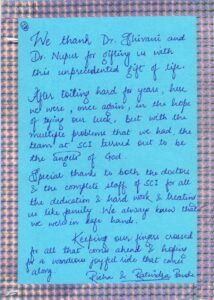 We thank Dr. Shivani and
Dr. Nupur for gifting us with
this unprecedented gift of life.
After toiling hard for years, here
we were, once again, in the hope
of trying our luck, but with the
multiple problems that we had, the
team at SCI turned out to be
the Angels of God
Special thanks to both the doctors
& the complete staff of SCI for all
the dedication & hard work & treating
us like family. We always knew that
we were in safe hands.
Keeping our fingers crossed
for all that comes ahead & hoping
for a wondrous joyful ride that comes
along.
Richa &